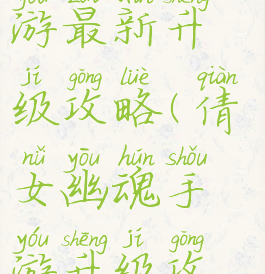 yóu zuì xīn shēng
游最新升
jí gōng lüè qiàn
级攻略(倩
nǚ yōu hún shǒu
女幽魂手
yóu shēng jí gōng
游升级攻